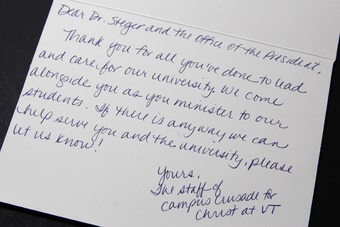 Dear Dr. Steger and the office of the President,
Thank you for all you've done to lead
and care for our university. We come
alongside you as you minister to our
students. If there is anyway we can
help serve you and the university, please
let us know!
Yours,
The staff of
Campus Crusade for
Christ at VT